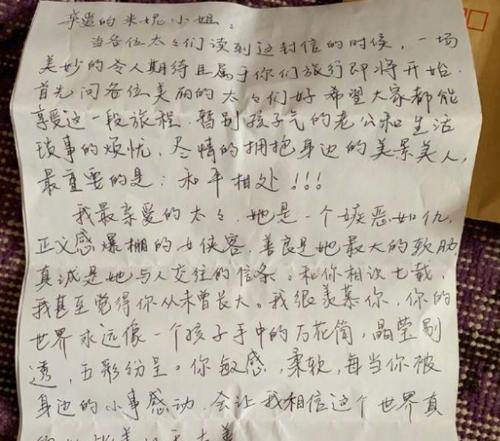 亲爱的米妮小姐。
当各位太太们读到这封信的时候，一场
美妙的令人期待且属于你们旅行即将开始.
首先问各位美丽的太太们好希望大家都能
享受这一段旅程，暂别孩子气的老公和生活
琐事的烦忧，尽情的拥抱身边的美景美人，
最重要的是：和平相处!!!
我最亲爱的太太，她是一个嫉恶如仇，
正义感爆棚的女侠客，善良是她最大的软肋
真诚是她与人交往的信条。和你相识七载，
我甚至觉得你从未曾长大。我很羡慕你，你的
世界永远像一个孩子手中的万花筒，晶莹剔
透，五彩纷呈。你敏感，柔软，每当你被
身边的小事感动，会让我相信这个世界真